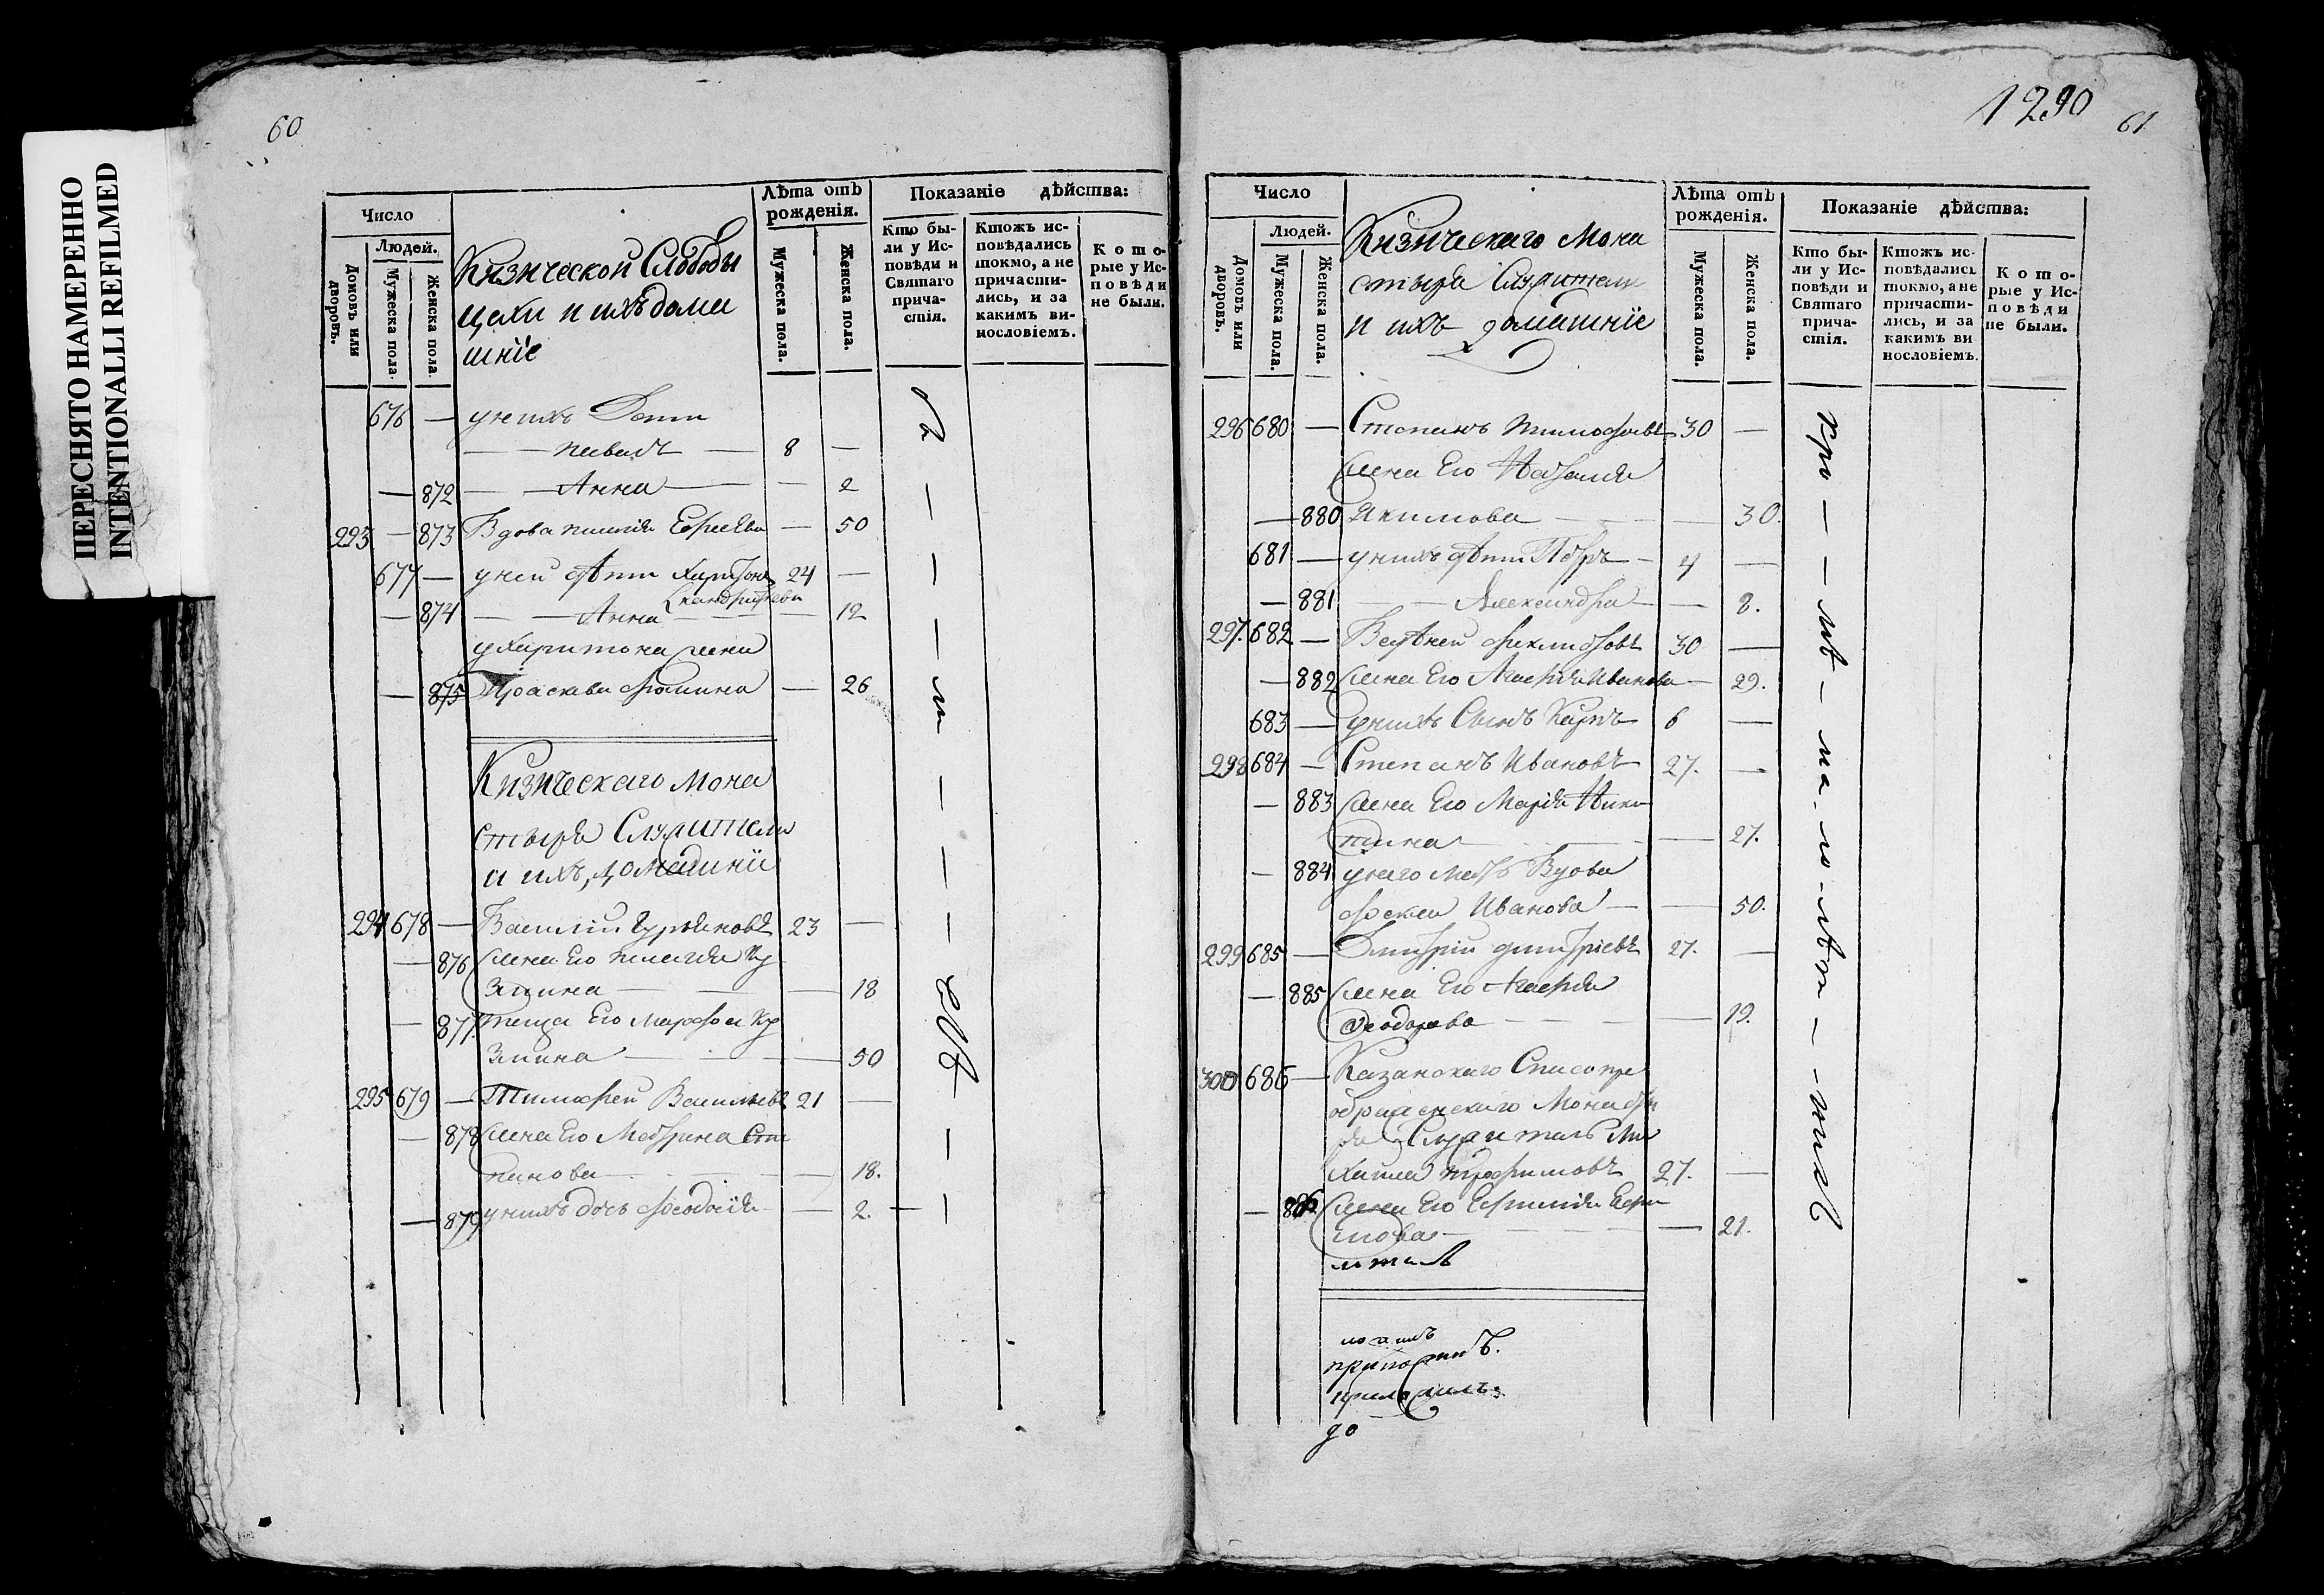 ПЕРЕСНЯТО НАМЕРЕННО
INTENTIONALLI REFILMED
60
Число
Людей.
Домовъ или дворовъ.
Мужеска пола.
Женска пола.
Кизической Слободы
цехи и ихъ дома
шніе
Лѣта отъ рожденія.
Мужеска пола.
Женска пола.
Показаніе дѣйства:
Кто бы-
ли у Ис-
повѣди и
Святаго
прича-
стія.
Ктожъ ис-
повѣдались
токмо, а не
причасти-
лись, и за
какимъ ви-
нословіемъ.
Кото-
рые у Ис-
повѣди
не были.
676 — у нихъ Дети
— — павелъ — 8 —
— 872 — — Анна — — 2
293 — 873 Вдова — 50
677 — у ней дѣти Харитонъ 24 —
— 874 — — Анна — — 12
у Харитона жена
— 875 Праскевья Фомина — 26
Кизическаго Мона
стыря Служители
и ихъ домашніи
294 678 — Василій Гурьяновъ 23 —
— 876 жена Его пелагея Ку
змина — — 18
— 877 теща Его Марфа Ку
змина — — 50
295 679 — Тимофей Васильевъ 21 —
— 878 жена Его Матрена Сте
панова — — 18.
— 879 у нихъ дочь Феодосія — 2.
1290
61
Число
Людей.
Домовъ или дворовъ.
Мужеска пола.
Женска пола.
Кизическаго Мона
стыря Служители
и ихъ домашніе
Лѣта отъ рожденія.
Мужеска пола.
Женска пола.
Показаніе дѣйства:
Кто бы-
ли у Ис-
повѣди и
Святаго
прича-
стія.
Ктожъ ис-
повѣдались
токмо, а не
причасти-
лись, и за
какимъ ви
нословіемъ.
Кото-
рые у Ис-
повѣди
не были.
296 680 — Степанъ тимофеевъ 30 —
жена Его Наталья
— 880 Якимова — — 30.
681 — у нихъ дѣти Петръ — 4 —
— 881 — — Александра — — 8.
297. 682 — 30 —
— 882 жена Его Агафья Иванова — 29.
683 — у нихъ Сынъ Карпъ 6 —
298 684 — Степанъ Ивановъ 27. —
— 883 жена Его Марія Ники
тина — — 27.
— 884 у него мать Вдова
Иванова — — 50.
299 685 — Дмитрій дмитріевъ 27. —
— 885 жена Его Агафья
Феодорова — — 19.
300 686 — Казанскаго Спасопре
ображенскаго Монасты
ря Служитель Ми
хаила трофимовъ 27. —
— 886 жена Его Ефи
мова — — 21.